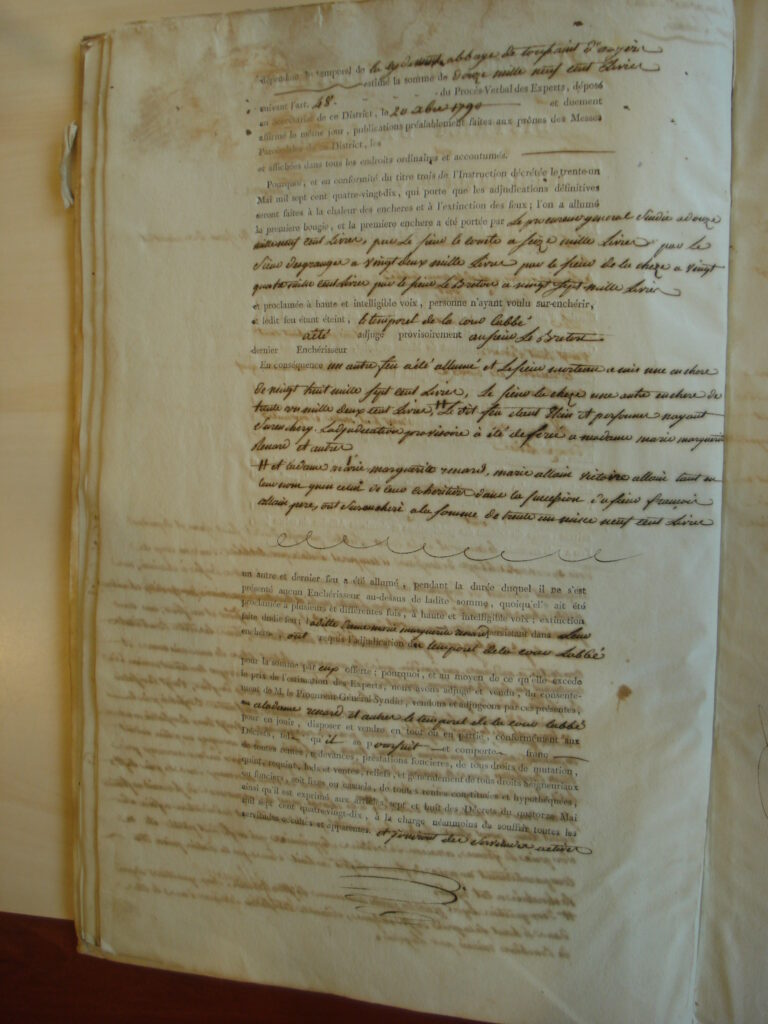 dépendant le temporel de la cy devant abbaye de toussaint d'angers
estimé la somme de douze mille neuf cent Livres
suivant l'art. 48. du Procès-Verbal des Experts, déposé
au secrétariat de ce District, le 20 xbre 1790 et duement
affirmé le même jour, publications préalablement faites aux prônes des Messes
Paroissiales de ce District, les
et affichées dans tous les endroits ordinaires et accoutumés.
Pourquoi, et en conformité du titre trois de l'Instruction décrétée le trente-un
Mai mil sept cent quatre-vingt-dix, qui porte que les adjudications définitives
seront faites à la chaleur des encheres et à l'extinction des feux; l'on a allumé
la premiere bougie, et la premiere enchere a été portée par Le procureur general Sindic a douze
mille neuf cent Livres, par Le sieur le comte a seize mille Livres par le
Sieur desgranges a vingt deux mille Livres par le sieur de la cheze a vingt
quatre mille cent Livres par le sieur Le Breton a vingt sept mille Livres
et proclamée à haute et intelligible voix, personne n'ayant voulu sur-enchérir,
et ledit feu étant éteint, le temporel de la cour Labbé
a été adjugé provisoirement au sieur Le Breton
dernier Enchérisseur
En conséquence un autre feu a été allumé et Le sieur morteau a mis une enchere
de vingt huit mille sept cent Livres, Le sieur la cheze une autre enchere de
trente un mille deux cent Livres, # Le dit feu eteint et personne nayant
Surenchery Ladjudication provisoire à été deferée a madame marie marguerite
Renard et autres
# et la dame marie marguerite renard, marie allain victoire allain tant en
leur nom quen celui de leur cohéritiers dans la succession du sieur françois
allain pere, ont Surencheri a la somme de trente un mille neuf cent Livres
un autre et dernier feu a été allumé, pendant la durée duquel il ne s'est
présenté aucun Enchérisseur au-dessus de ladite somme, quoiqu'elle ait été
proclamée à plusieurs et différentes fois, à haute et intelligible voix; extinction
faite dudit feu; laditte dame marie marguerite renard persistant dans Leur
enchere, ont requis l'adjudication du temporel de la cour Labbé
pour la somme par eux offerte; pourquoi, et au moyen de ce qu'elle excede
le prix de l'estimation des Experts, nous avons adjugé et vendu, du consente-
ment de M. le Procureur-Général-Syndic, vendons et adjugeons par ces présentes,
a Madame renard et autres le temporel de la cour Labbé
pour en jouir, disposer et vendre en tout ou en partie, conformément aux
Décrets, tels qu'il se poursuit et comporte franc
de toutes rentes, redevances, prestations foncieres, de tous droits de mutation,
quint, requint, lods et ventes, reliefs, et généralement de tous droits Seigneuriaux
ou fonciers, soit fixes ou casuels, de toutes rentes constituées et hypothéquées,
ainsi qu'il est exprimé aux articles sept et huit des Décrets du quatorze Mai
mil sept cent quatre-vingt-dix, à la charge néanmoins de souffrir toutes les
servitudes occultes et apparentes, et jouiront des servitudes actives